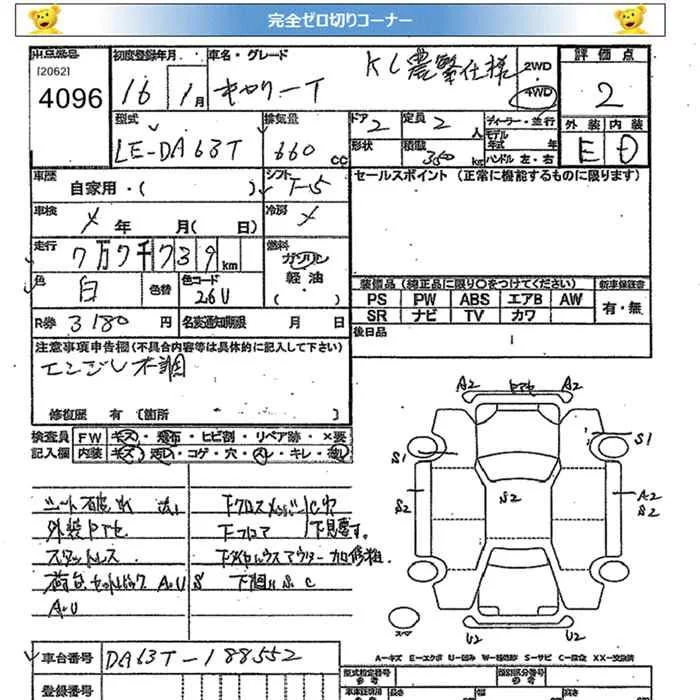 完全ゼロ切りコーナー
出品番号 初度登録年月 車名・グレード 評価点
[2062]
4096 16年 1月 キャリーT KC農繁仕様 2WD 4WD 2
型式 排気量 ドア 2 定員 2人 ディーラー・並行 外装 内装
LE-DA63T 660cc 形状 積載 350kg モデル 年式 年 ハンドル 左・右 E D
車歴 自家用・( ) シフト F5 セールスポイント (正常に機能するものに限ります)
車検 メ 年 月( 日) 冷房 メ
走行 7万7千739km 燃料 ガソリン
色 白 色替 色コード 26U 軽油 ( )
装備品 (純正品に限り○をつけてください) 新車保証書
PS PW ABS エアB AW 有・無
SR ナビ TV カワ
R券 3180円 名変通知期限 月 日 後日品
注意事項申告欄(不具合内容等は具体的に記入して下さい)
エンジン不調
修復歴 有 [箇所 ]
検査員 FW キズ・ ・ヒビ割・リペア跡・×要
記入欄 内装 キズ・汚レ・コゲ・穴・スレ・キレ・
シート破れ 下クロスメンバーC穴
外装PTセ 下フロア 下見要す。
スタットレス
荷台 AU S 下廻りS.C
AU
A2 PTセ A2
S1 S1
S2 S2 A2
S2
U2 U2
スペア
A−キズ E−エクボ U−凹み W−補修跡 S−サビ C−腐食 XX−交換済
車台番号 DA63T-188552
登録番号 型式指定番号 類別区分番号